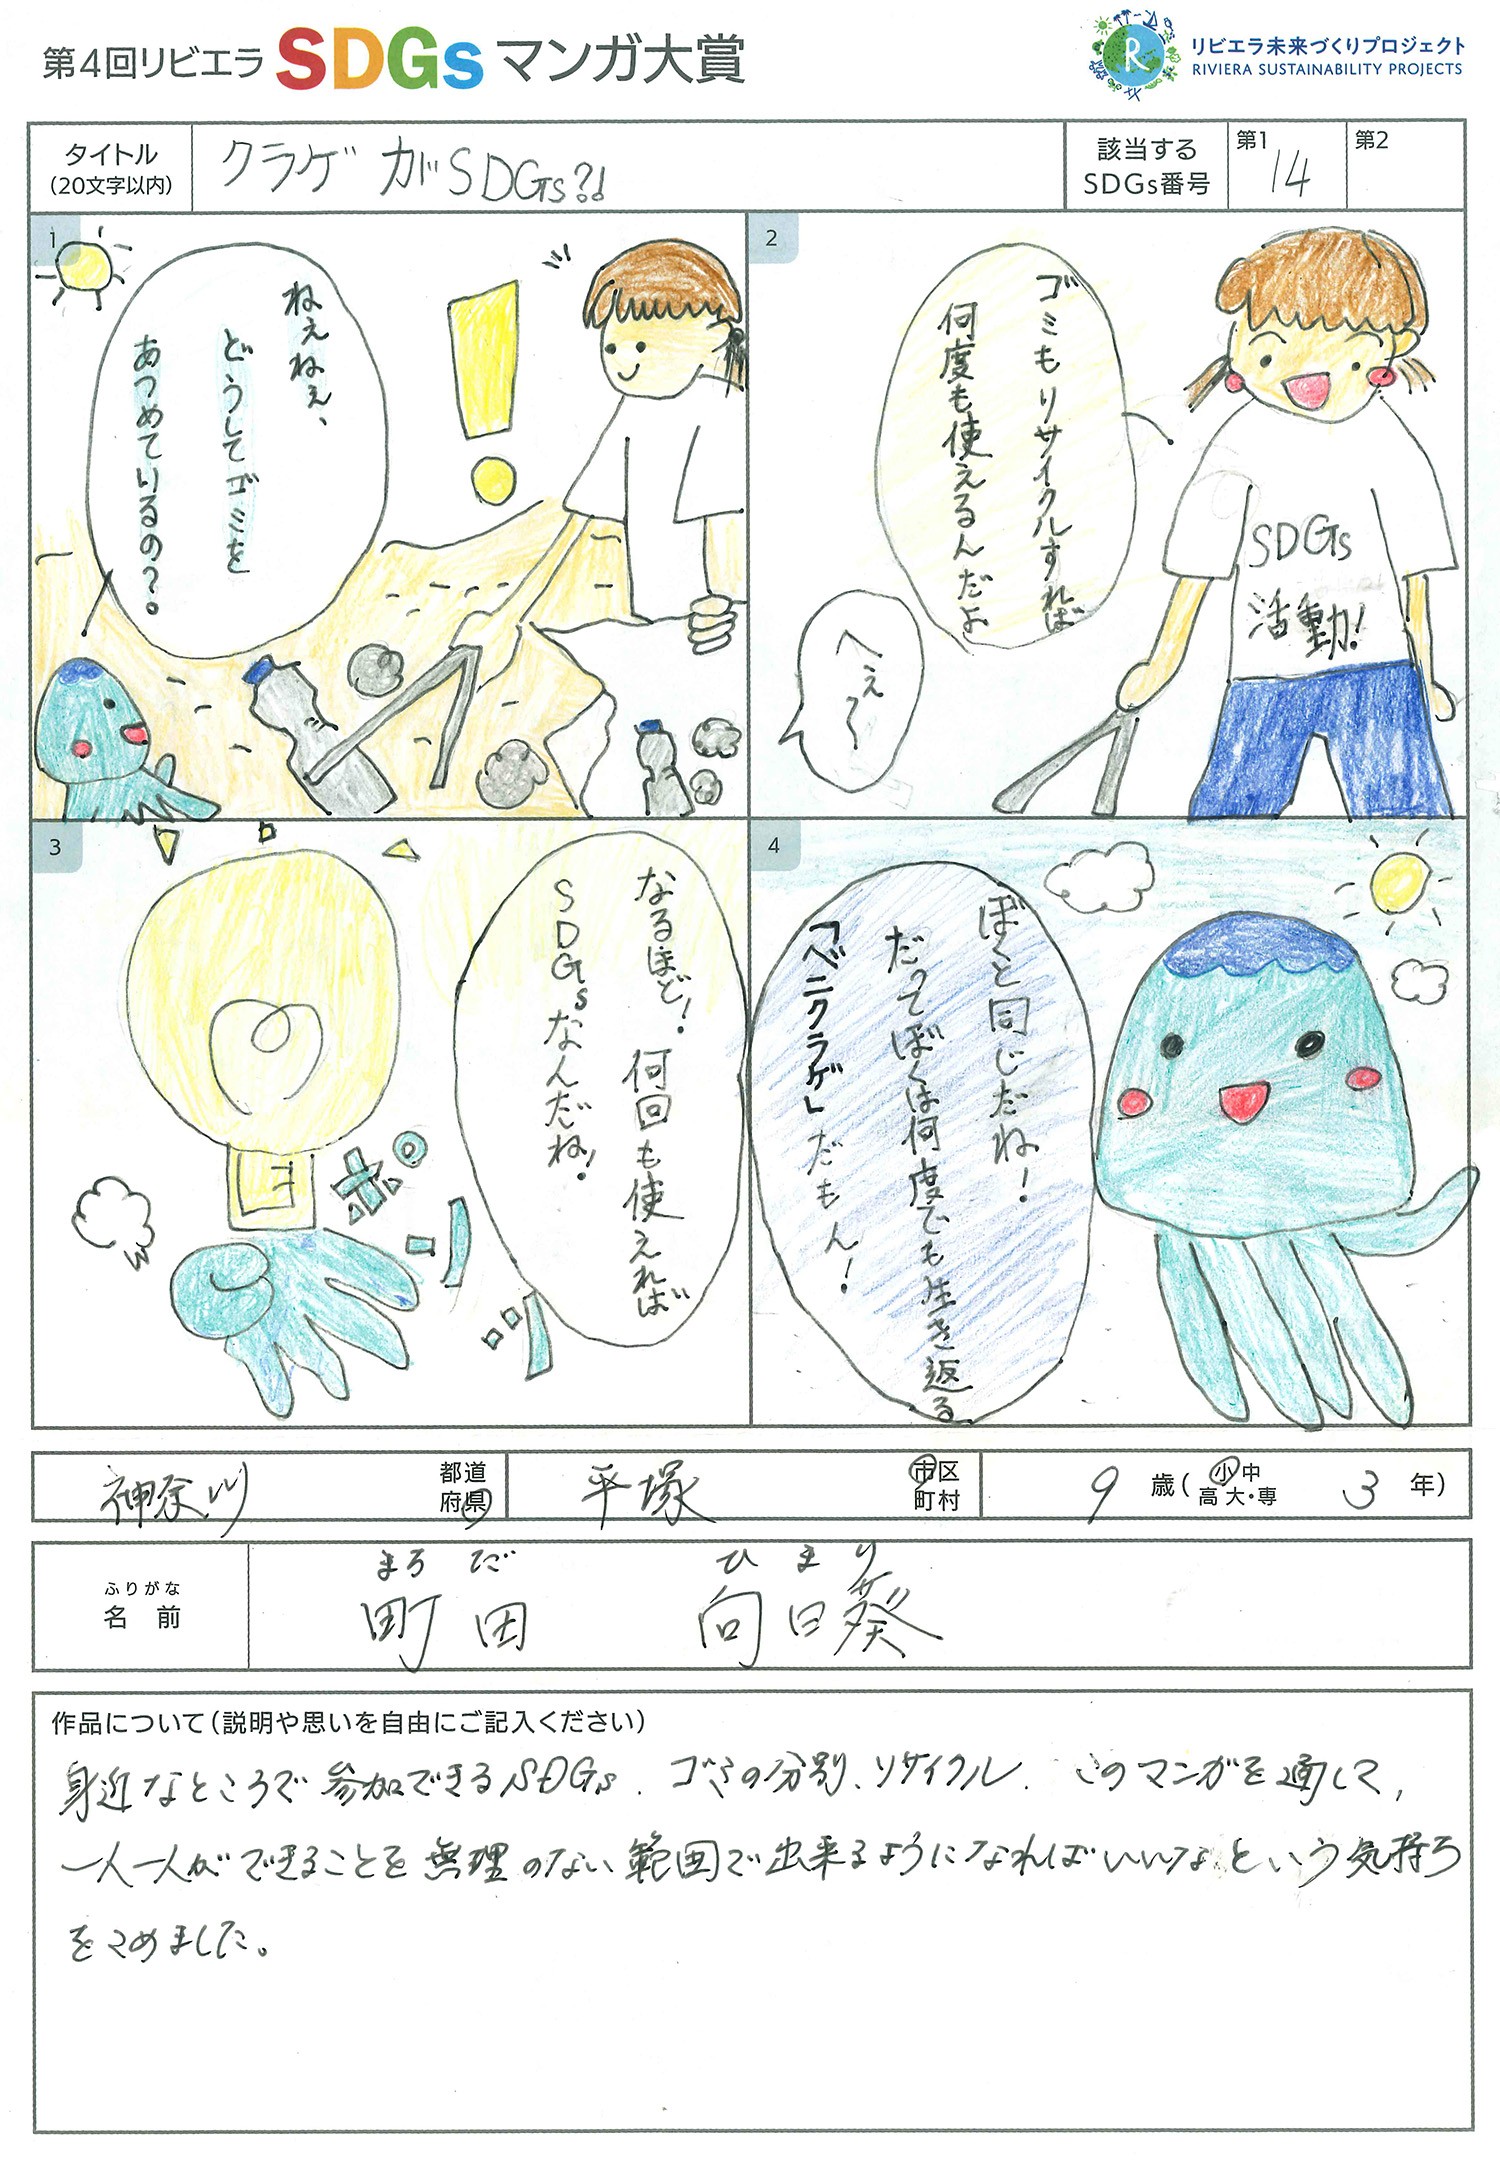 第4回リビエラ SDGs マンガ大賞
リビエラ未来づくりプロジェクト
RIVIERA SUSTAINABILITY PROJECTS
タイトル
(20文字以内)
クラゲがSDGs?!
該当する
SDGs番号
第1
14
第2
1
ねぇねぇ、
どうしてゴミを
あつめているの?。
2
ゴミもリサイクルすれば
何度も使えるんだよ
へぇ〜
SDGs
活動!
3
なるほど!何回も使えれば
SDGsなんだね!
ポンッ
4
ぼくと同じだね!
だってぼくは何度でも生き返る
「ベニクラゲ」だもん!
神奈川
都道
府県
平塚
市区
町村
9 歳(小中
高大・専 3 年)
ふりがな
名 前
まちだ ひまり
町田 向日葵
作品について(説明や思いを自由にご記入ください)
身近なところで参加できるSDGs.ゴミの分別、リサイクル.このマンガを通して、
一人一人ができることを無理のない範囲で出来るようになればいいなという気持ち
をこめました。